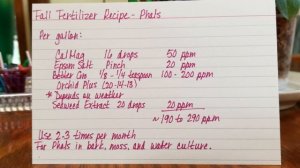 Fall Fertilizer Recipe - Phals
Per gallon:
CalMag 16 drops 50 ppm
Epsom Salt Pinch 20 ppm
Better Gro 1/8 - 1/4 teaspoon 100 - 200 ppm
Orchid Plus (20-14-13)
* Depends on weather
Seaweed Extract 20 drops 20 ppm
~ 190 to 290 ppm
Use 2-3 times per month
For Phals in bark, moss, and water culture.